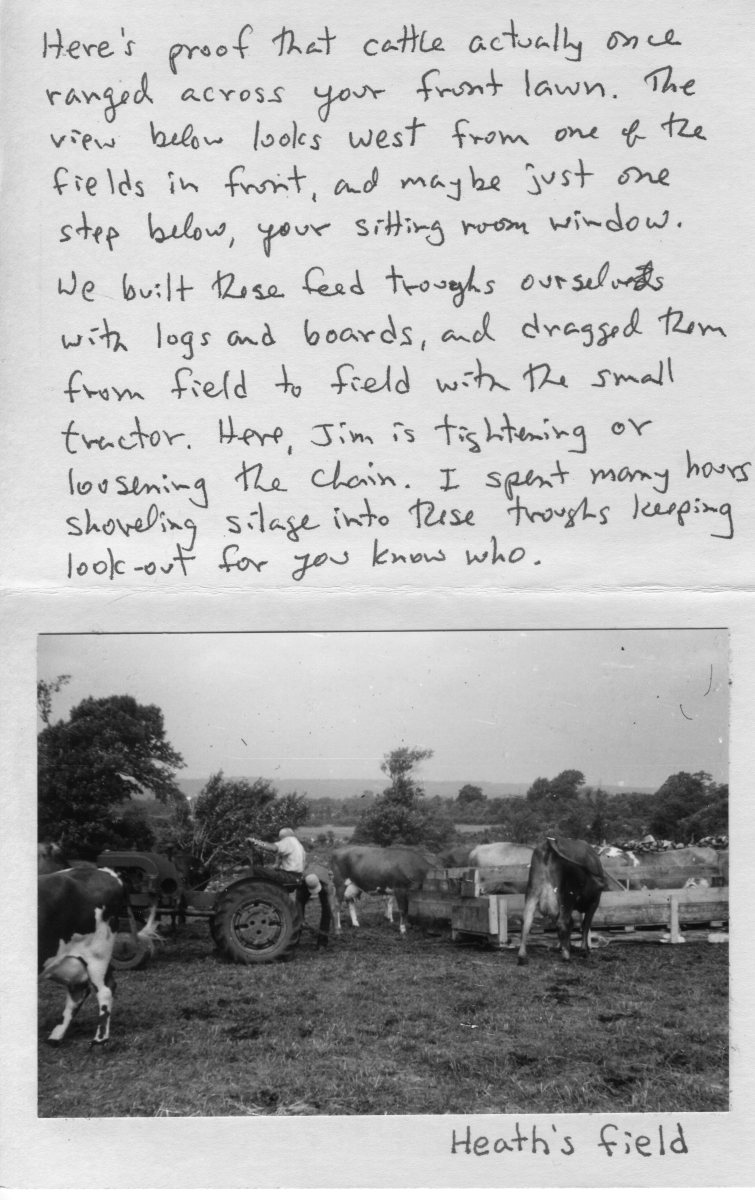 Here's proof that cattle actually once
ranged across your front lawn. The
view below looks west from one of the
fields in front, and maybe just one
step below, your sitting room window.
We built these feed troughs ourselves
with logs and boards, and dragged them
from field to field with the small
tractor. Here, Jim is tightening or
loosening the chain. I spent many hours
shoveling silage into these troughs keeping
look-out for you know who.
Heath's field